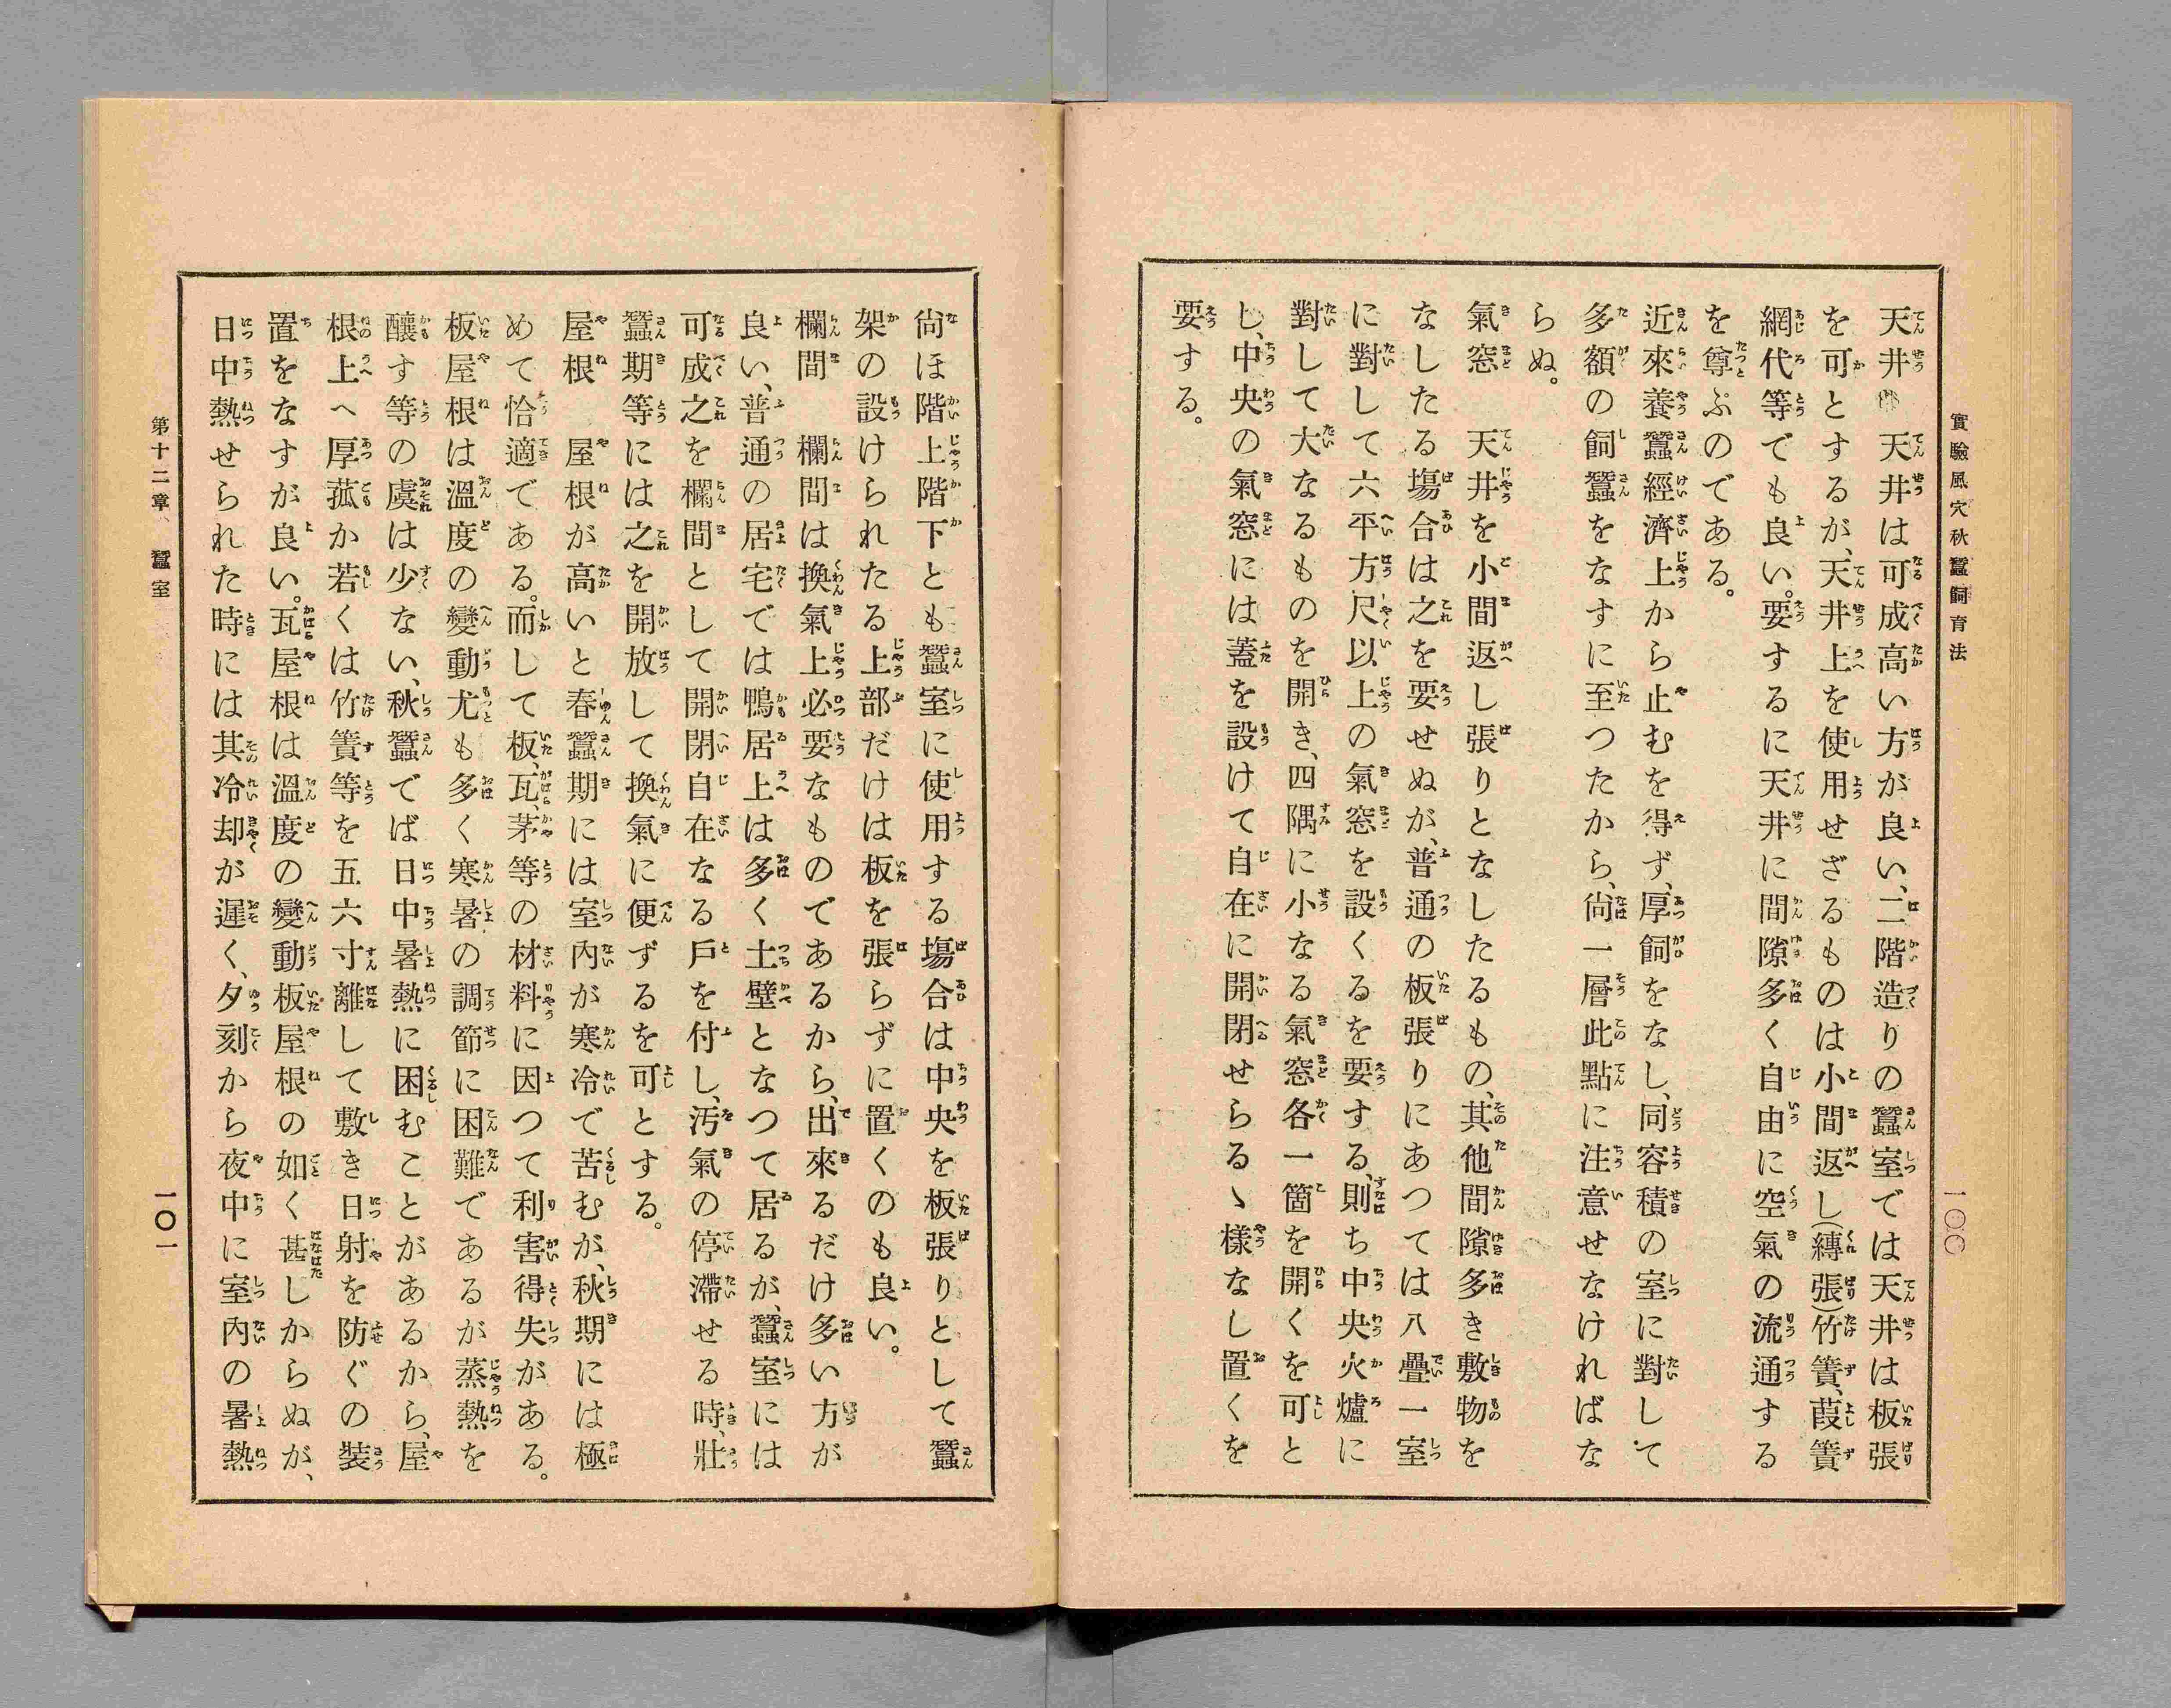 實驗風穴秋蠶飼育法
一〇〇
天井 天井は可成高い方が良い、二階造りの蠶室では天井は板張
を可とするが、天井上を使用せざるものは小間返し(縛張)竹簀、葭簀
網代等でも良い。要するに天井に間隙多く自由に空氣の流通する
を尊ぶのである。
近來養蠶經濟上から止むを得ず、厚飼をなし、同容積の室に對して
多額の飼蠶をなすに至つたから、尙一層此點に注意せなければな
らぬ。
氣窓 天井を小間返し張りとなしたるもの、其他間隙多き敷物を
なしたる場合は之を要せぬが、普通の板張りにあつては八疊一室
に對して六平方尺以上の氣窓を設くるを要する、則ち中央火爐に
對して大なるものを開き、四隅に小なる氣窓各一箇を開くを可と
し、中央の氣窓には蓋を設けて自在に開閉せらるゝ樣なし置くを
要する。
尙ほ階上階下とも蠶室に使用する場合は中央を板張りとして蠶
架の設けられたる上部だけは板を張らずに置くのも良い。
欄間 欄間は換氣上必要なものであるから、出來るだけ多い方が
良い、普通の居宅では鴨居上は多く土壁となつて居るが、蠶室には
可成之を欄間として開閉自在なる戶を付し、汚氣の停滯せる時、壯
蠶期等には之を開放して換氣に便ずるを可とする。
屋根 屋根が高いと春蠶期には室內が寒冷で苦むが、秋期には極
めて恰適である。而して板、瓦、茅等の材料に因つて利害得失がある。
板屋根は溫度の變動尤も多く寒暑の調節に困難であるが蒸熱を
釀す等の虞は少ない、秋蠶でば日中暑熱に困むことがあるから、屋
根上へ厚菰か若くは竹簀等を五六寸離して敷き日射を防ぐの裝
置をなすが良い。瓦屋根は溫度の變動板屋根の如く甚しからぬが、
日中熱せられた時には其冷却が遲く、夕刻から夜中に室內の暑熱
第十二章 蠶室
一〇一